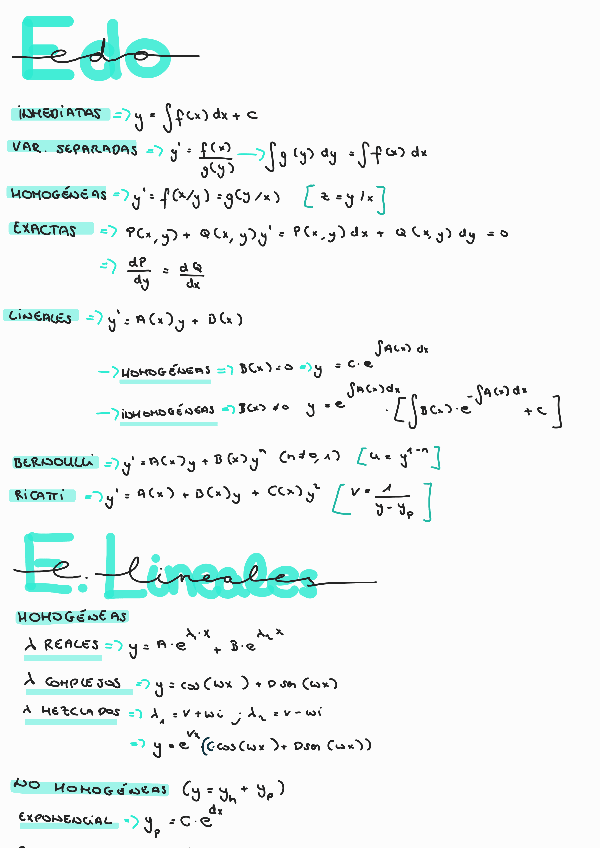 Edo
edo
INMEDIATAS => y = ∫f(x) dx + C
VAR. SEPARADAS => y' = f(x)/g(y) → ∫g(y) dy = ∫f(x) dx
HOMOGÉNEAS => y' = f(x/y) = g(y/x) [z = y/x]
EXACTAS => P(x,y) + Q(x,y)y' = P(x,y) dx + Q(x,y) dy = 0
=> dP/dy = dQ/dx
LINEALES => y' = A(x)y + B(x)
→ HOMOGÉNEAS => B(x) = 0 => y = C·e^∫A(x) dx
→ INHOMOGÉNEAS => B(x) ≠ 0 y = e^∫A(x)dx · [∫B(x)·e^-∫A(x)dx + C]
BERNOULLI => y' = A(x)y + B(x)y^n (n≠0,1) [u = y^1-n]
RICATTI => y' = A(x) + B(x)y + C(x)y² [v = 1/(y - yₚ)]
E. Lineales
e. lineales
HOMOGÉNEAS
λ REALES => y = A·e^λ₁·x + B·e^λ₂x
λ COMPLEJOS => y = cos(wx) + D sen(wx)
λ MEZCLADOS => λ₁ = v+wi ; λ₂ = v-wi
=> y = e^vx (C cos(wx) + D sen(wx))
NO HOMOGÉNEAS (y = yₕ + yₚ)
EXPONENCIAL => yₚ = C·e^dx